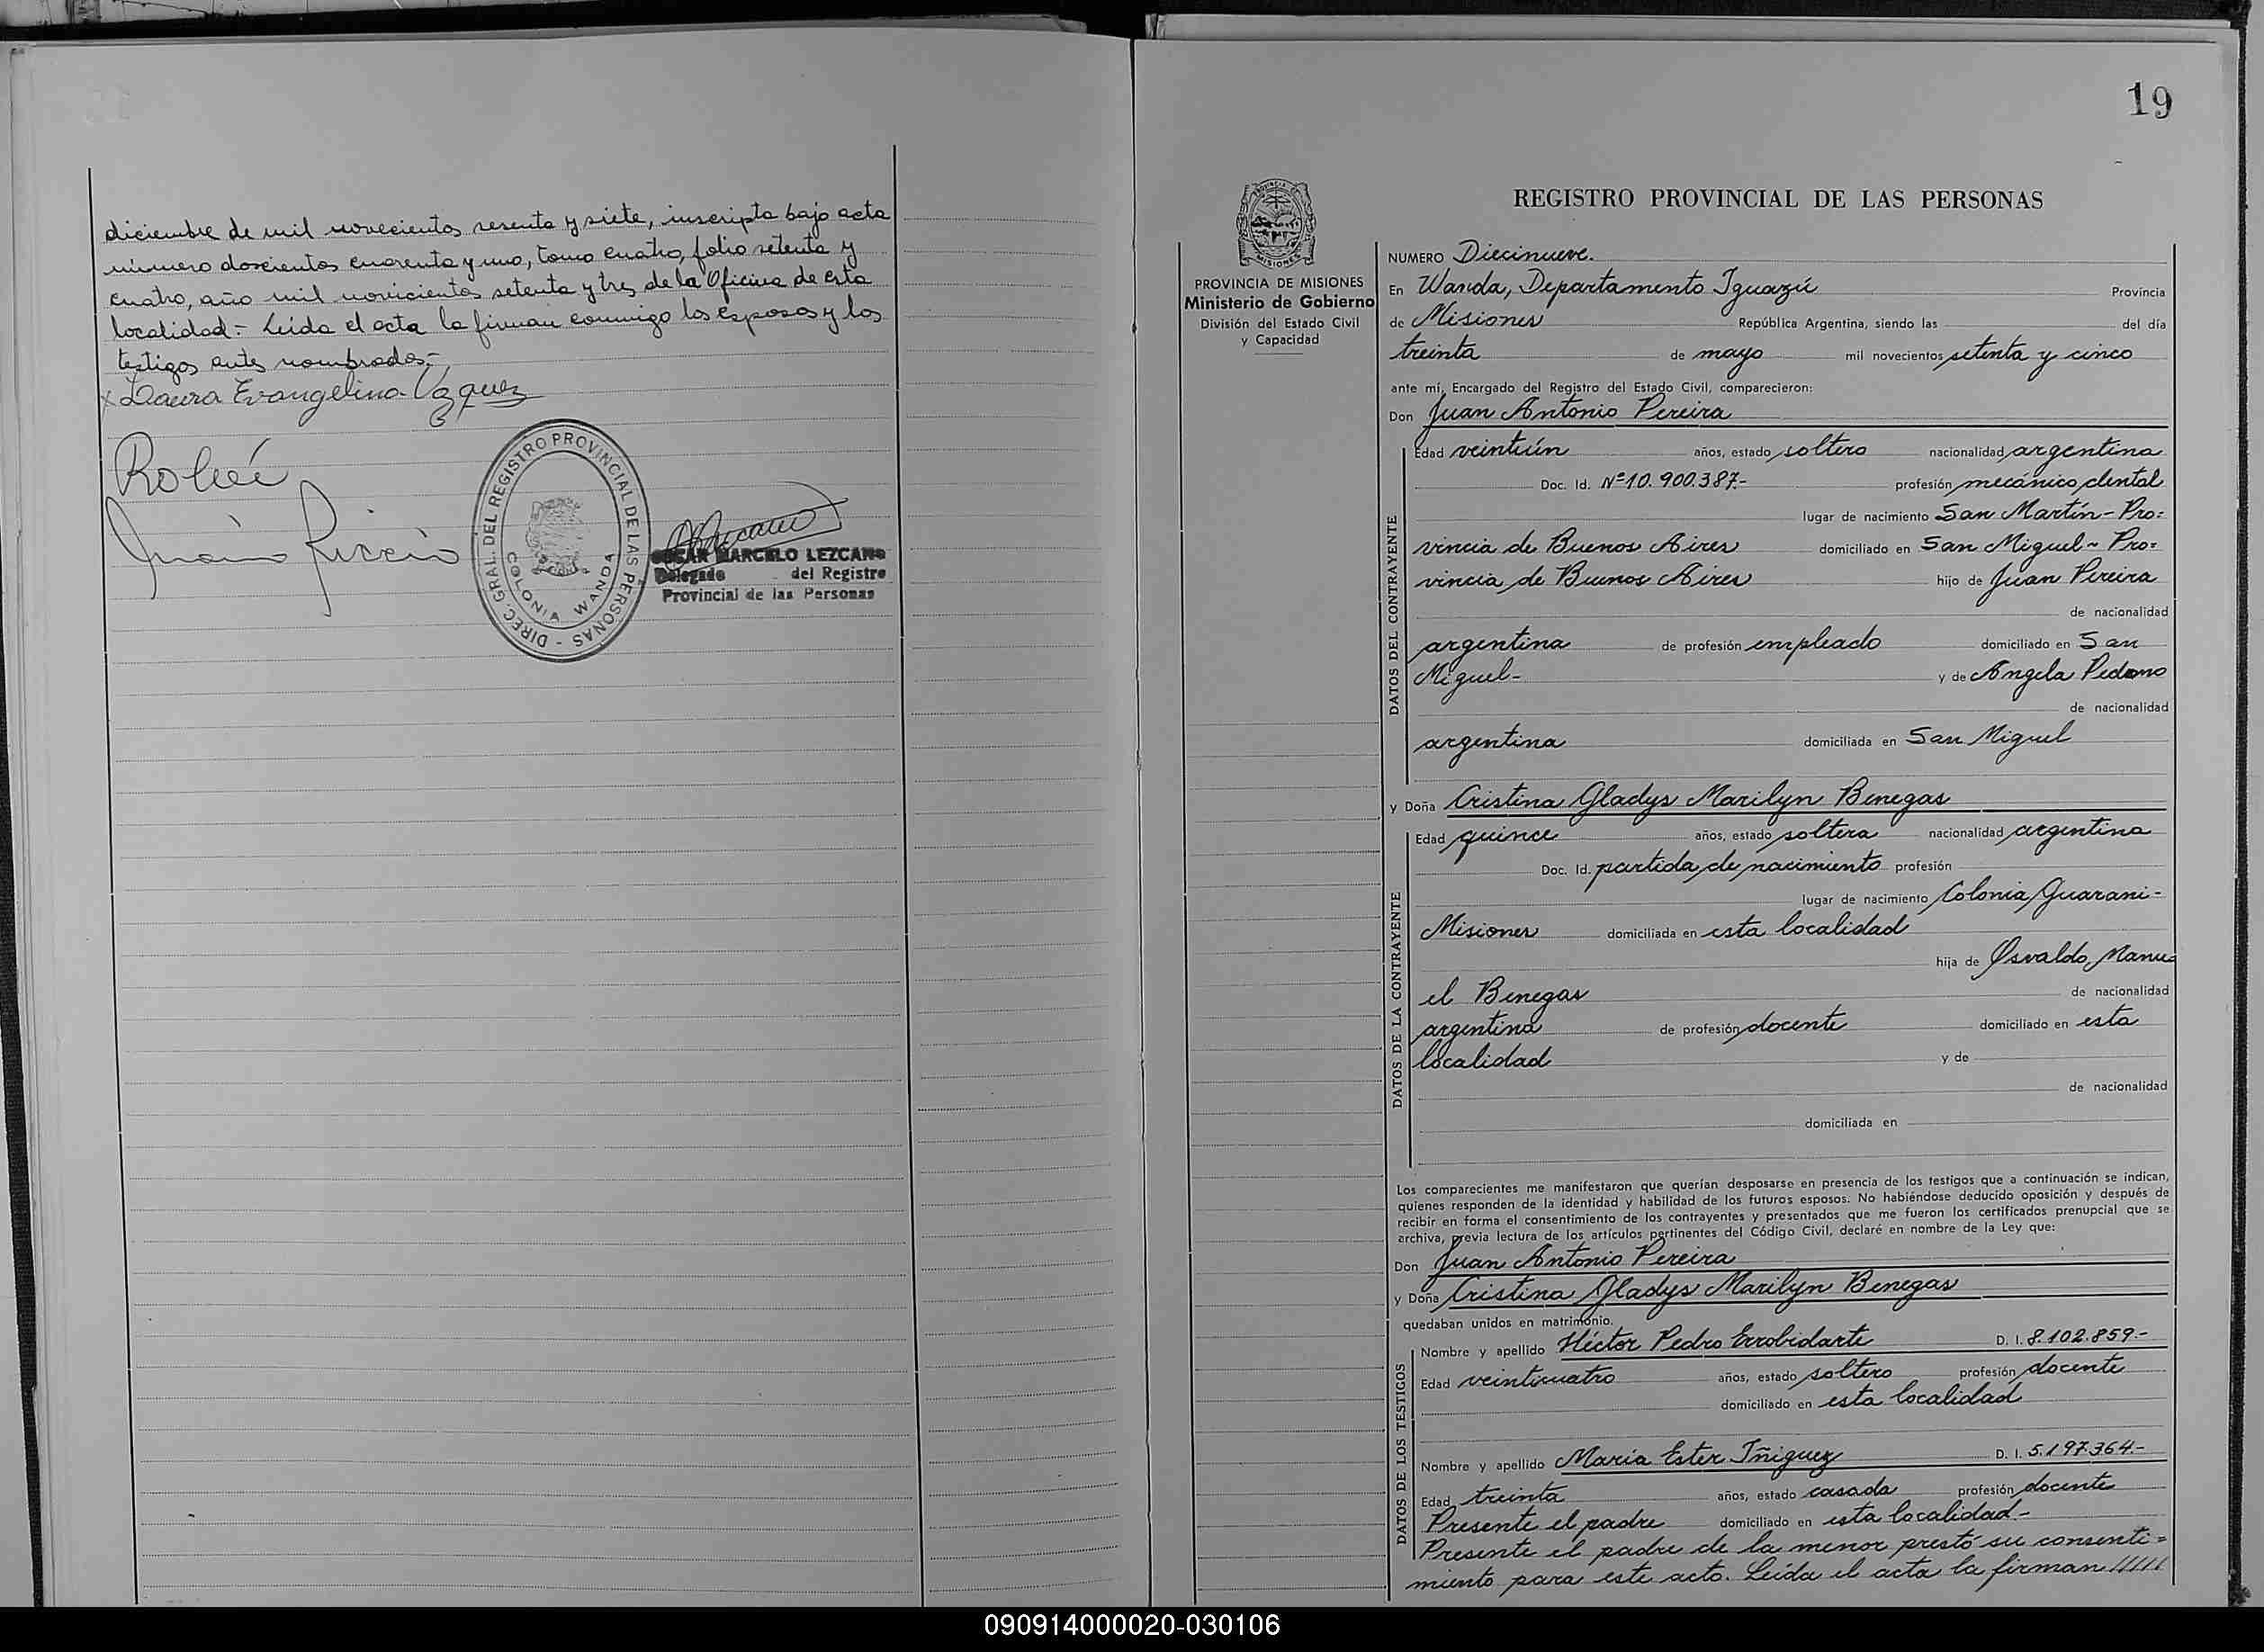 diciembre de mil novecientos sesenta y siete, inscripta bajo acta
número doscientos cuarenta y uno, tomo cuatro, folio setenta y
cuatro, año mil novicientos setenta y tres de la Oficina de esta
localidad.- Leída el acta la firman conmigo los esposos y los
testigos antes nombrados.-
x Laura Evangelina Vazquez
DIREC. GRAL. DEL REGISTRO PROVINCIAL DE LAS PERSONAS -
COLONIA WANDA
OSCAR MARCELO LEZCANO
Delegado del Registro
Provincial de las Personas
19
REGISTRO PROVINCIAL DE LAS PERSONAS
PROVINCIA DE MISIONES
Ministerio de Gobierno
División del Estado Civil
y Capacidad
NUMERO Diecinueve.
En Wanda, Departamento Iguazú Provincia
de Misiones República Argentina, siendo las del día
treinta de mayo mil novecientos setenta y cinco
ante mí, Encargado del Registro del Estado Civil, comparecieron:
Don Juan Antonio Pereira
DATOS DEL CONTRAYENTE
Edad veintiún años, estado soltero nacionalidad argentina
Doc. Id. Nº 10.900.387.- profesión mecánico dental
lugar de nacimiento San Martín - Pro=
vincia de Buenos Aires domiciliado en San Miguel - Pro=
vincia de Buenos Aires hijo de Juan Pereira
de nacionalidad
argentina de profesión empleado domiciliado en San
Miguel- y de Angela Pedano
de nacionalidad
argentina domiciliada en San Miguel
y Doña Cristina Gladys Marilyn Benegas
DATOS DE LA CONTRAYENTE
Edad quince años, estado soltera nacionalidad argentina
Doc. Id. partida de nacimiento profesión
lugar de nacimiento Colonia Guarani-
Misiones domiciliada en esta localidad
hija de Osvaldo Manu=
el Benegas de nacionalidad
argentina de profesión docente domiciliado en esta
localidad y de
de nacionalidad
domiciliada en
Los comparecientes me manifestaron que querían desposarse en presencia de los testigos que a continuación se indican,
quienes responden de la identidad y habilidad de los futuros esposos. No habiéndose deducido oposición y después de
recibir en forma el consentimiento de los contrayentes y presentados que me fueron los certificados prenupcial que se
archiva, previa lectura de los artículos pertinentes del Código Civil, declaré en nombre de la Ley que:
Don Juan Antonio Pereira
y Doña Cristina Gladys Marilyn Benegas
quedaban unidos en matrimonio.
DATOS DE LOS TESTIGOS
Nombre y apellido Héctor Pedro Errobidarte D. I. 8.102.859.-
Edad veinticuatro años, estado soltero profesión docente
domiciliado en esta localidad
Nombre y apellido María Ester Iñiguez D. I. 5.197.364-
Edad treinta años, estado casada profesión docente
Presente el padre domiciliado en esta localidad.-
Presente el padre de la menor prestó su consenti=
miento para este acto. Leída el acta la firman /////
090914000020-030106